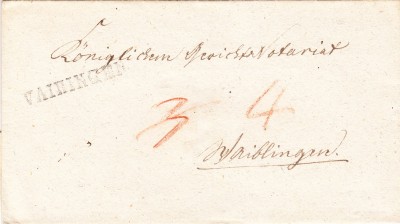 Königlichem Gerichts Notariat
VAIHINGEN
4
Waiblingen.